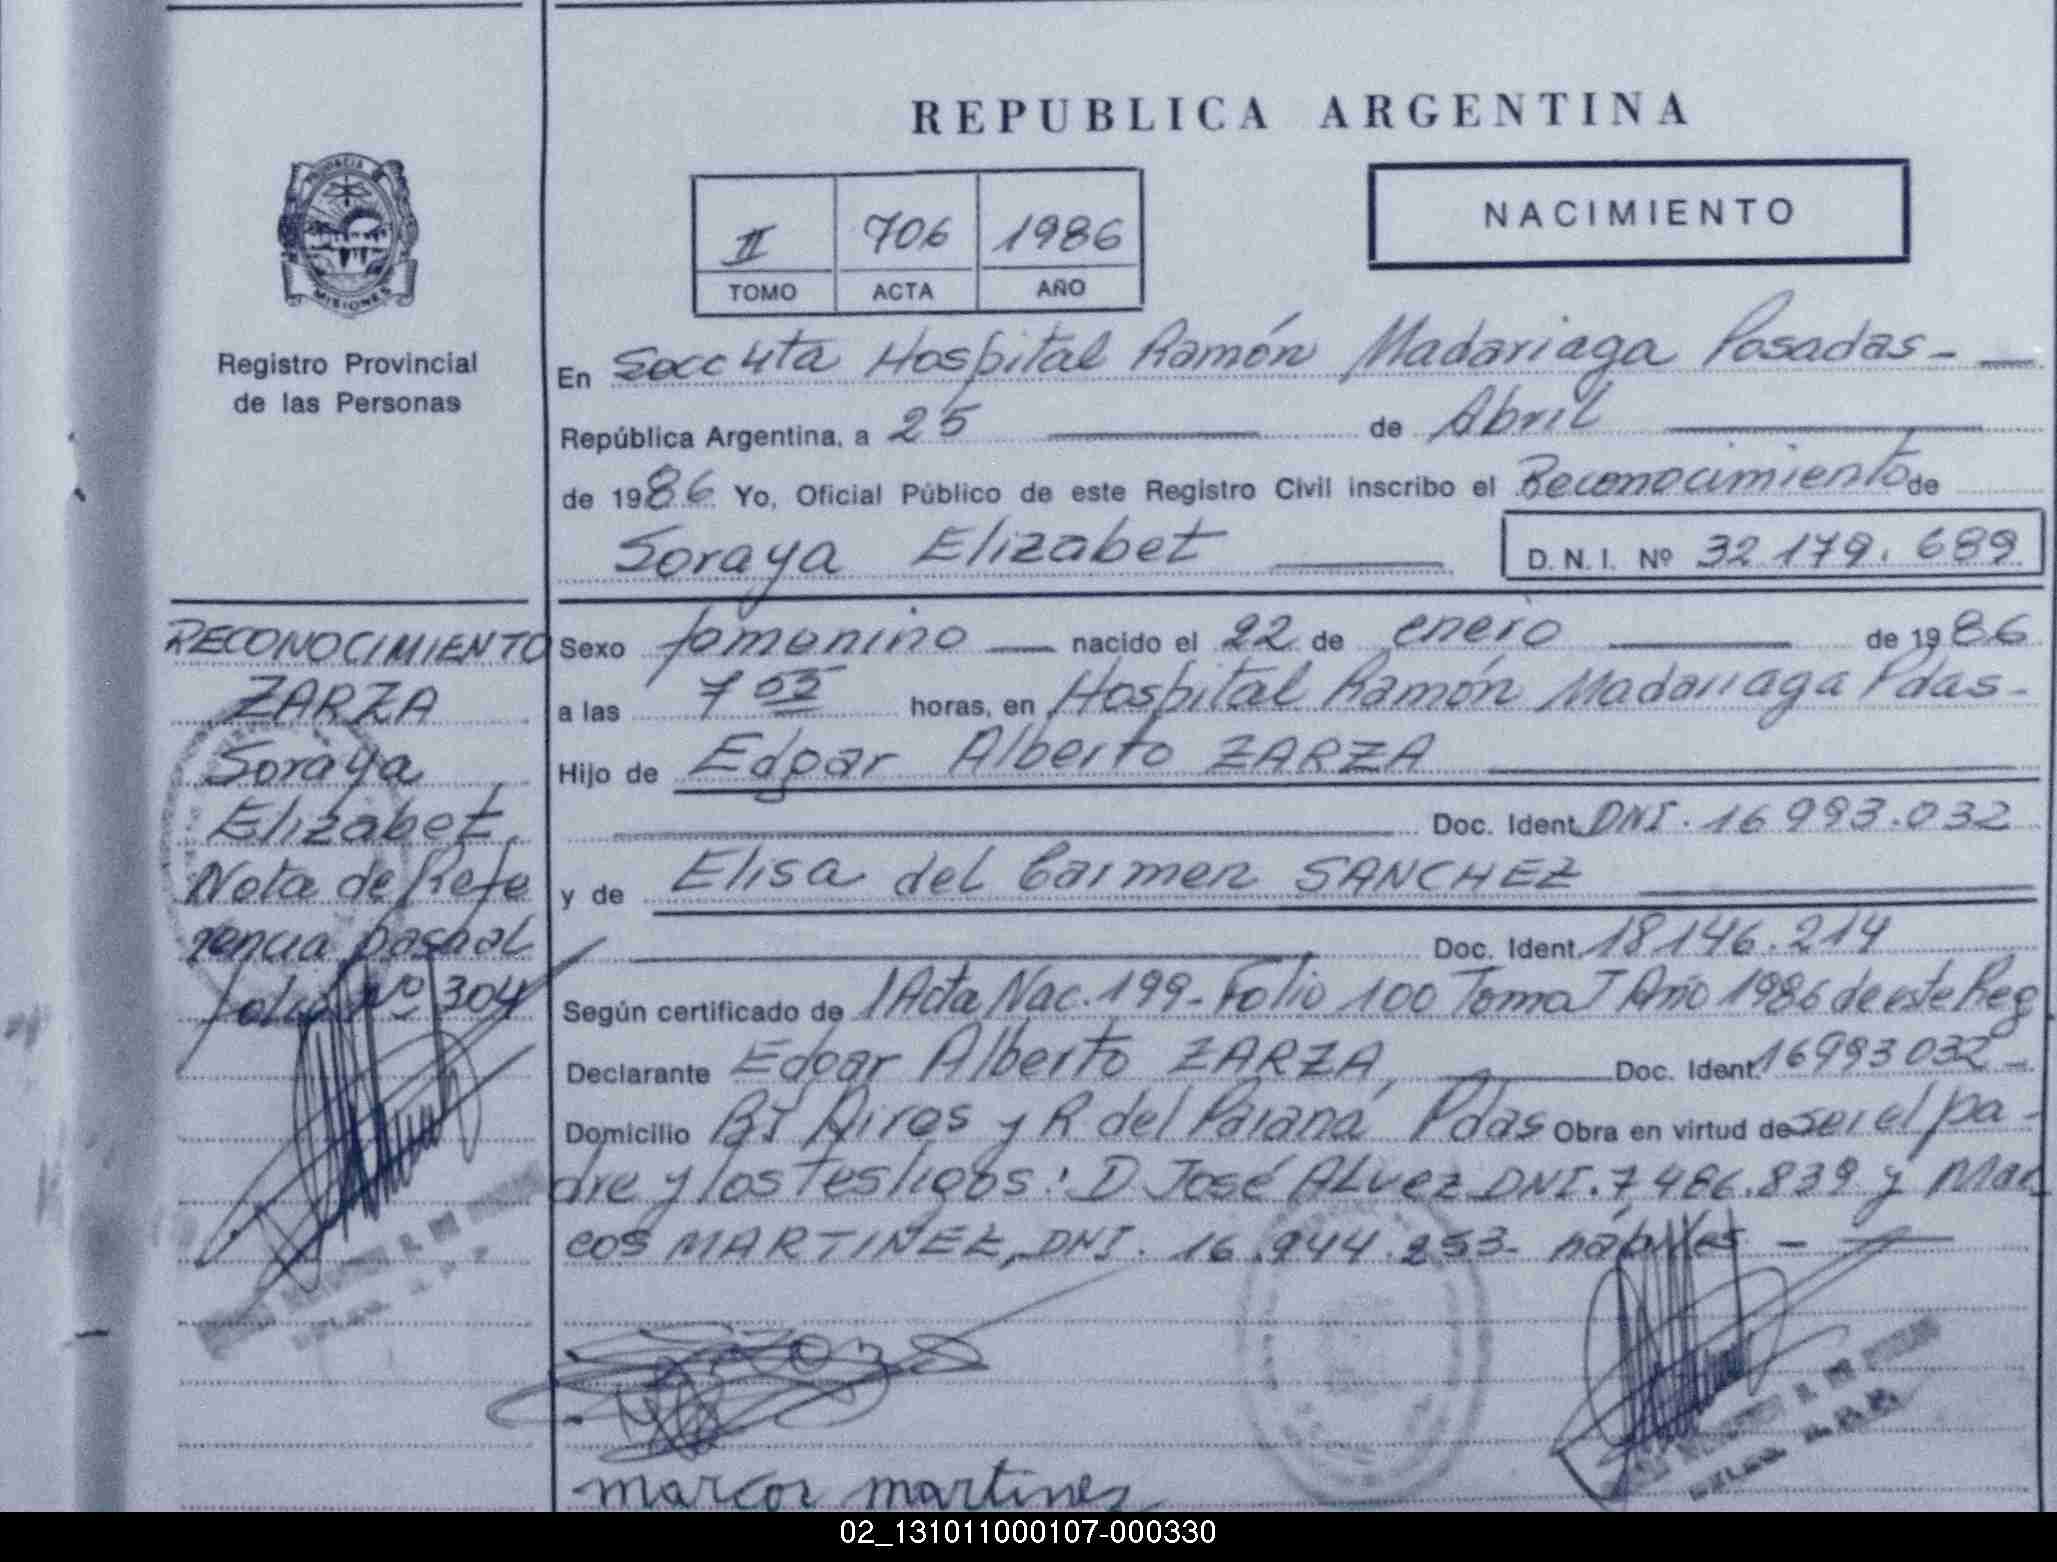 REPUBLICA ARGENTINA
PROVINCIA DE
MISIONES
Registro Provincial
de las Personas
II 706 1986
TOMO ACTA AÑO
NACIMIENTO
En Secc 4ta Hospital Ramón Madariaga Posadas -
República Argentina, a 25 de Abril
de 1986 Yo, Oficial Público de este Registro Civil inscribo el Reconocimiento de
Soraya Elizabet
D. N. I. Nº 32 179. 689
RECONOCIMIENTO
ZARZA
Soraya
Elizabet
Nota de Refe
rencia pasa al
folio Nº 304
Sexo femenino nacido el 22 de enero de 1986
a las 7 05 horas, en Hospital Ramón Madariaga Pdas-
Hijo de Edgar Alberto ZARZA
Doc. Ident. DNI. 16 993.032
y de Elisa del Carmen SANCHEZ
Doc. Ident. 18146.214
Según certificado de 1 Acta Nac. 199- Folio 100 Tomo I Año 1986 de este Reg
Declarante Edgar Alberto ZARZA, Doc. Ident. 16993032 -
Domicilio Bs Aires y R del Paraná Pdas Obra en virtud de ser el pa-
dre y los testigos: D José ALVEZ DNI. 7 486.839 y Mar
cos MARTINEZ, DNI. 16.944.253- hábiles -
marcos martines
02_131011000107-000330